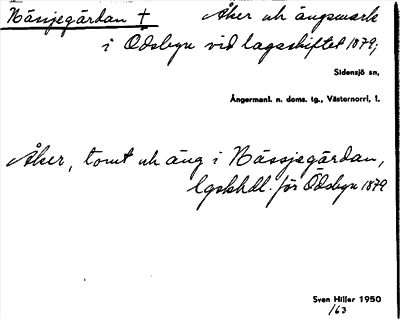 Nässjegärdan † Åker och ängsmark
i Ödsbyn vid lagaskiftet 1879;
Sidensjö sn,
Ångermanl. n. doms. tg., Västernorrl. l.
Åker, tomt och äng i Nässjegärdan,
lgskhdl. för Ödsbyn 1879
Sven Hiller 1950
/63